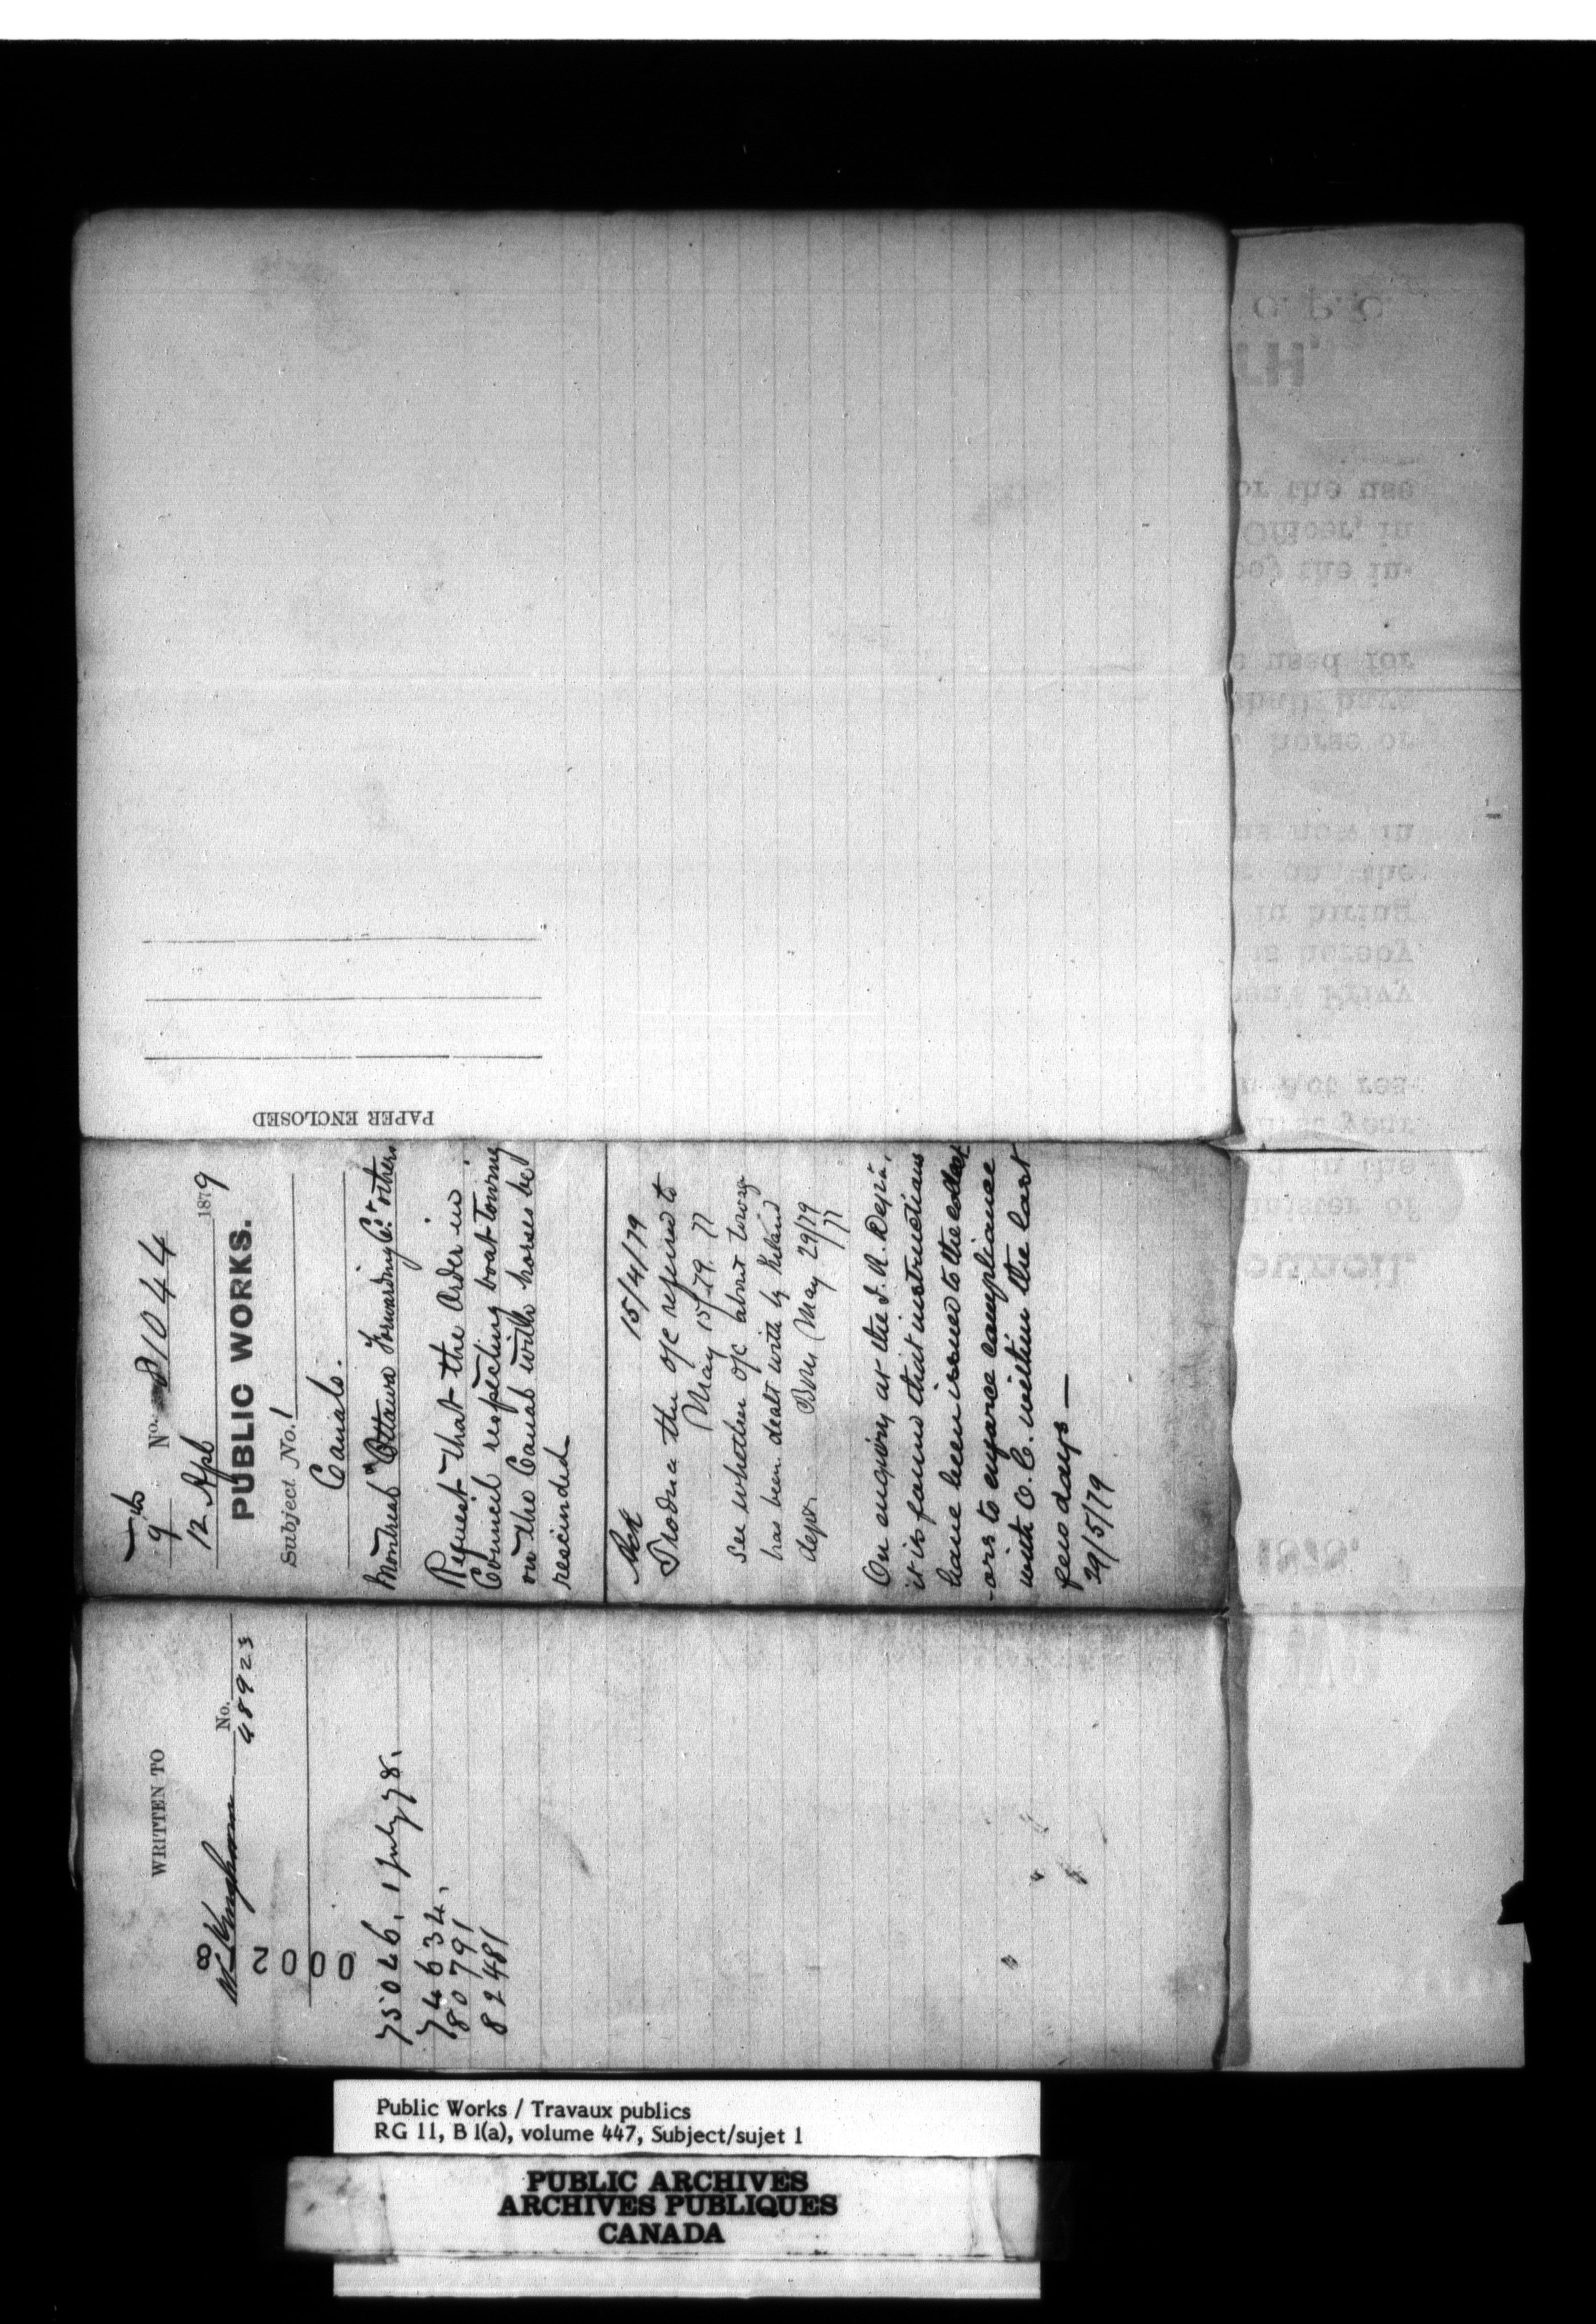 PAPER ENCLOSED
9 No. 81044
12 Apl 1879
PUBLIC WORKS.
Subject No. 1
Canals.
Montreal & Ottawa Forwarding Co. & others
Request that the Order in
Council respecting boat towing
on the Canal with horses be
rescinded.
Ack 15/4/79
Produce the O/C referred to
May 15/79
See whether O/C about towing
has been dealt with by Inland
depr. May 29/79
On enquiry at the I. R. Dept.,
it is found that instructions
have been issued to the collect
-ors to enforce compliance
with O. C. within the last
few days —
29/5/79
WRITTEN TO
No.
48923
0002 8
75046, 1 July 78.
74634,
80791
82481
Public Works / Travaux publics
RG 11, B 1(a), volume 447, Subject/sujet 1
PUBLIC ARCHIVES
ARCHIVES PUBLIQUES
CANADA